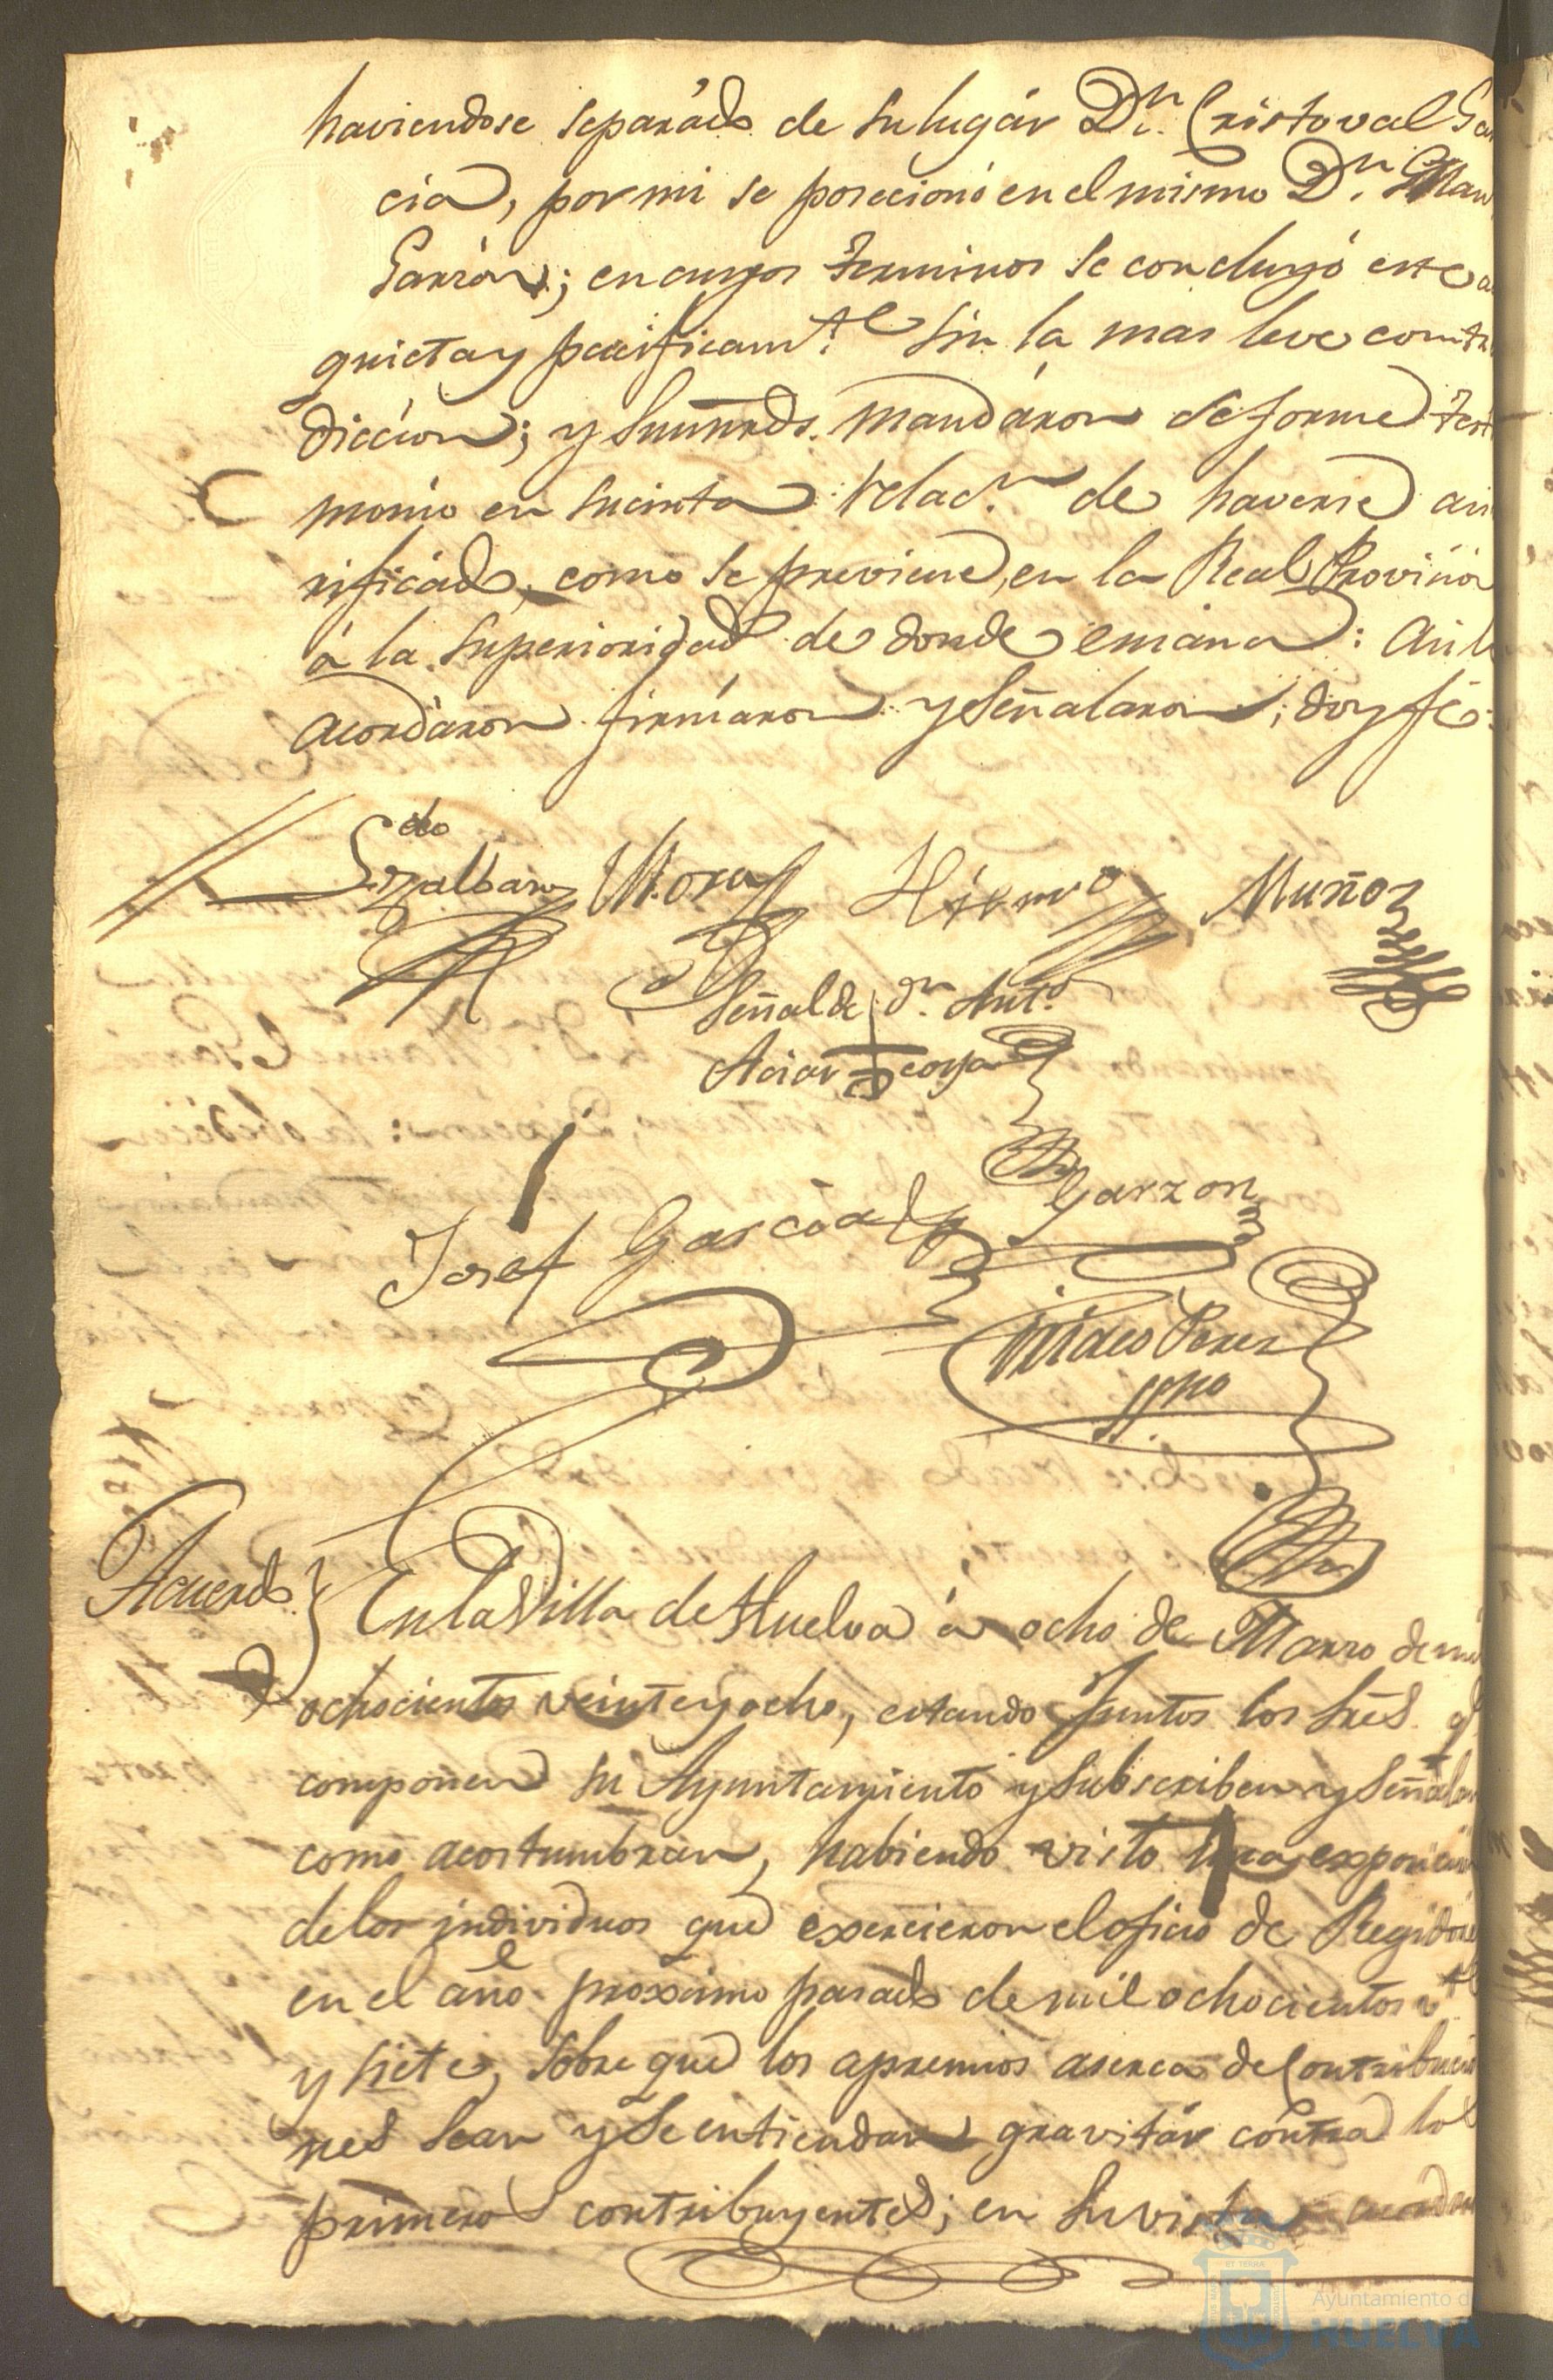 haviendose separado de su lugár Dn. Cristoval Gar
cia, por mi se posecionó en el mismo Dn. Man
Garzón; en cuyos terminos se concluyó este a
quieta y pacificamte. sin la mas leve contra
diccion; y sus mrds. mandáron se forme testi
monio en sucinta relacn. de haverse asi
rificado, como se previene, en la Real Provision
á la Superioridad de donde emana: Asi lo
acordáron firmáron y señalaron; doy fé:
Mora Hierro Muñoz
Señal de dn. Anto.
Garzon
Josef Garcia
Perez
Acuerdo
En la Villa de Huelva á ocho de Marzo de mil
ochocientos veinte y ocho, estando juntos los Sres. q
componen su Ayuntamiento y subscriben y señalan
como acostumbran, habiendo visto una exposicion
de los individuos que exercieron el oficio de Regidores
en el año proximo pasado de mil ochocientos vte
y siete, sobre que los apremios aserca de Contribucio
nes sean y se entiendan gravitár contra los
primeros contribuyentes; en su vista acordaron
Ayuntamiento d
HUELVA